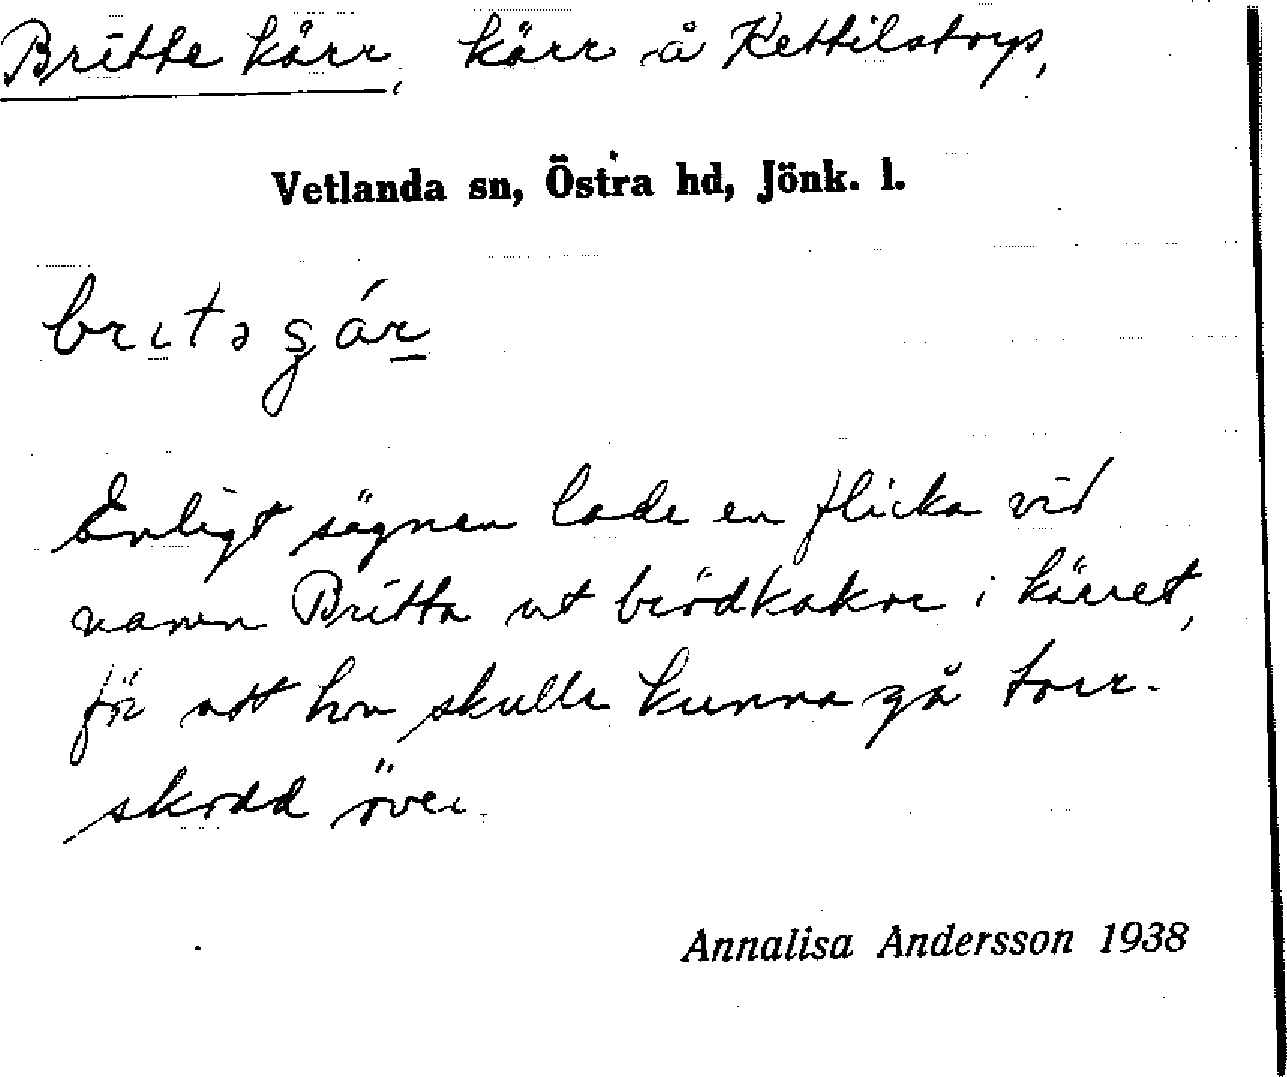 Britte kärr, kärr å Kettilstorp,
Vetlanda sn, Östra hd, Jönk. l.
Enligt sägnen lade en flicka vid
namn Britta ut brödkakor i kärret,
för att hon skulle kunna gå torr-
skodd över.
Annalisa Andersson 1938